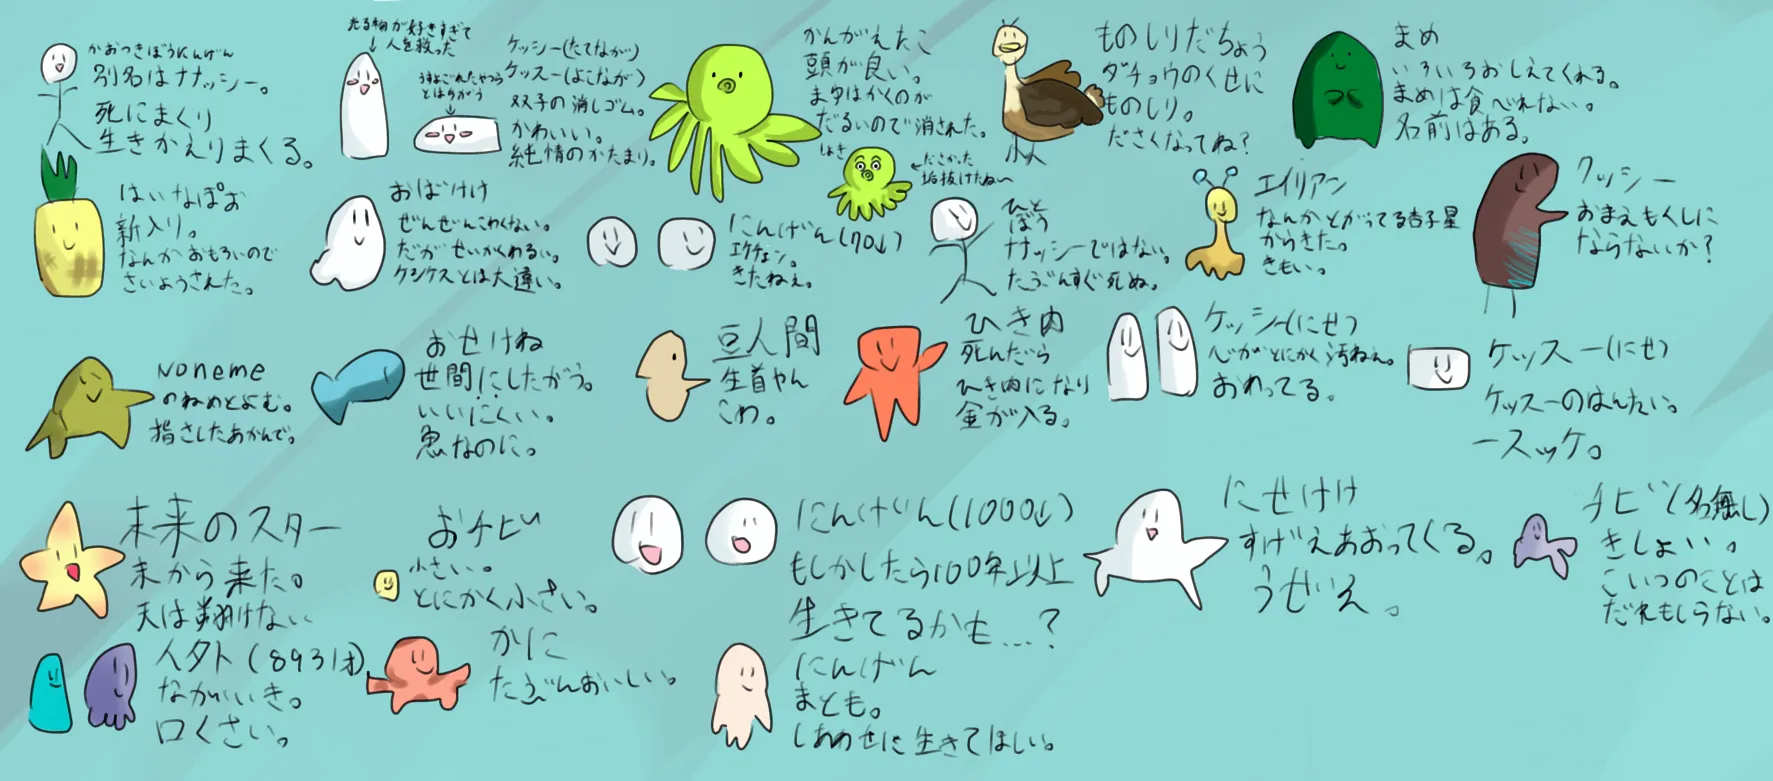 かおつきぼうにんげん
別名はナナッシー。
死にまくり
生きかえりまくる。
光る物が好きすぎて
人を救った
うすよごれたやつら
とはちがう
ケッシー(たてなが)
ケッスー(よこなが)
双子の消しゴム。
かわいい。
純情のかたまり。
かんがえたこ
頭が良い。
まゆはかくのが
だるいので消された。
しょき
ださかった
垢抜けたね〜
ものしりだちょう
ダチョウのくせに
ものしり。
ださくなってね?
まめ
いろいろおしえてくれる。
まめは食べれない。
名前はある。
はいなぽお
新入り。
なんかおもろいので
さいようされた。
おばけけ
ぜんぜんこわくない。
だがせいかくわるい。
ケシケスとは大違い。
にんげん(70↓)
エケチェン。
きたねぇ。
ひと
ぼう
ナナッシーではない。
たぶんすぐ死ぬ。
エイリアン
なんかとがってる杏子星
からきた。
きもい。
クッシー
おまえもくしに
ならないか?
Noneme
のねめとよむ。
指さしたあかんで。
おせけね
世間にしたがう。
いいにくい。
魚なのに。
豆人間
生首やん
こわ。
ひき肉
死んだら
ひき肉になり
金が入る。
ケッシー(にせ)
心がとにかく汚ねえ。
おわってる。
ケッスー(にせ)
ケッスーのはんたい。
ースッケ。
未来のスター
未から来た。
天は翔けない
おチビ
小さい。
とにかく小さい。
にんげん(1000↓)
もしかしたら100年以上
生きてるかも…?
にせけけ
すげえあおってくる。
うぜいえ。
チビ(名無し)
きしょい。
こいつのことは
だれもしらない。
人タト(8931才)
ながいき。
口くさい。
かに
たぶんおいしい。
にんげん
まとも。
しあわせに生きてほしい。